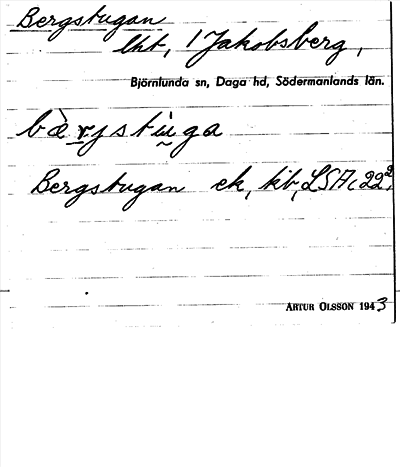 Bergstugan
lht, / Jakobsberg,
Björnlunda sn, Daga hd, Södermanlands län.
bæ̀rjstùga
Bergstugan ek, kb, LSA c 22²,
ARTUR OLSSON 1943